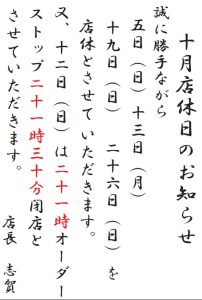 十月店休日のお知らせ
誠に勝手ながら
五日（日）十三日（月）
十九日（日）　二十六日（日）を
店休とさせていただきます。
又、十二日（日）は二十一時オーダー
ストップ二十一時三十分閉店と
させていただきます。
店長　志賀